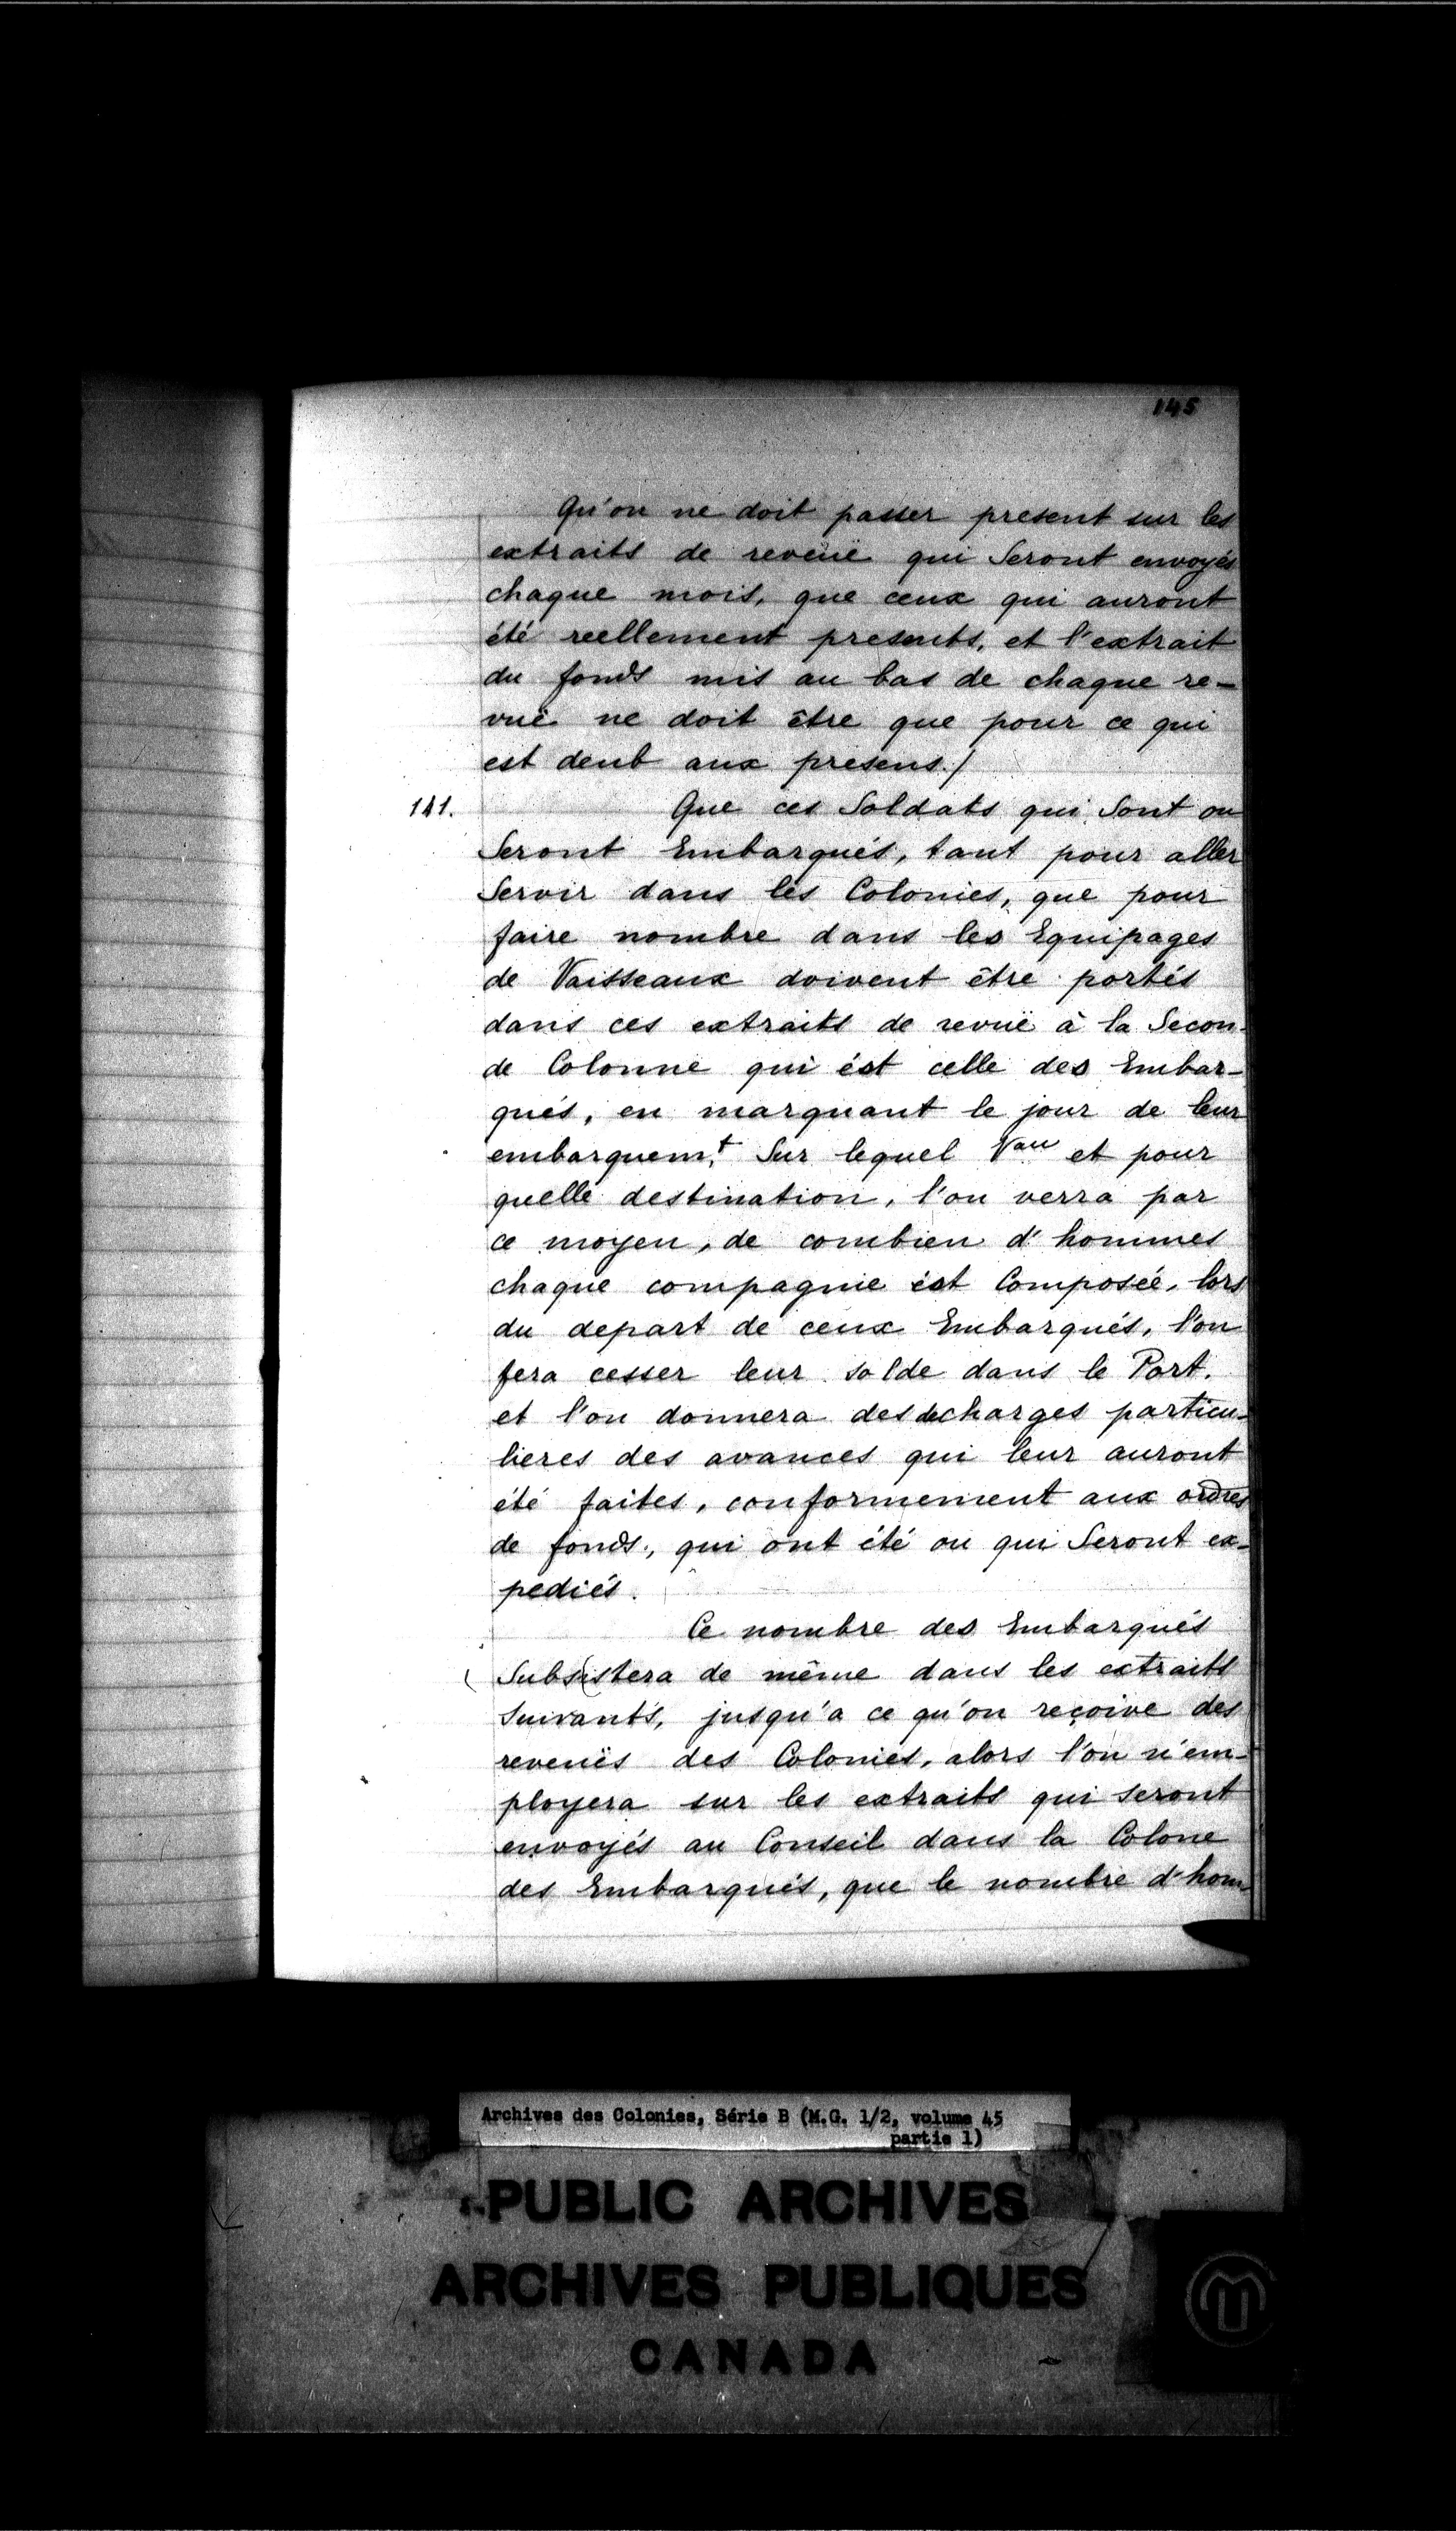 145
Qu'on ne doit passer present sur les
extraits de reveüe qui Seront envoyés
chaque mois, que ceux qui auront
été reellement presents, et l'extrait
du fonds mis au bas de chaque re-
vuë ne doit être que pour ce qui
est deub aux presens./
141.
Que ces Soldats qui Sont ou
Seront Embarqués, tant pour aller
Servir dans les Colonies, que pour
faire nombre dans les Equipages
de Vaisseaux doivent être portés
dans ces extraits de revuë à la Secon-
de Colonne qui ést celle des Embar-
qués, en marquant le jour de leur
embarquem.t Sur lequel Vau et pour
quelle destination, l'on verra par
ce moyen, de combien d'hommes
chaque compagnie ést Composée, lors
du depart de ceux Embarqués, l'on
fera cesser leur solde dans le Port,
et l'on donnera des decharges particu-
lieres des avances qui leur auront
été faites, conformement aux ordres
de fonds, qui ont été ou qui Seront ex-
pediés.
Ce nombre des Embarqués
Subsistera de même dans les extraits
Suivants, jusqu'a ce qu'on reçoive des
reveuës des Colonies, alors l'on n'em-
ployera sur les extraits qui seront
envoyés au Conseil dans la Colone
des Embarqués, que le nombre d'hom-
Archives des Colonies, Série B (M.G. 1/2, volume 45
partie 1)
PUBLIC ARCHIVES
ARCHIVES PUBLIQUES
CANADA